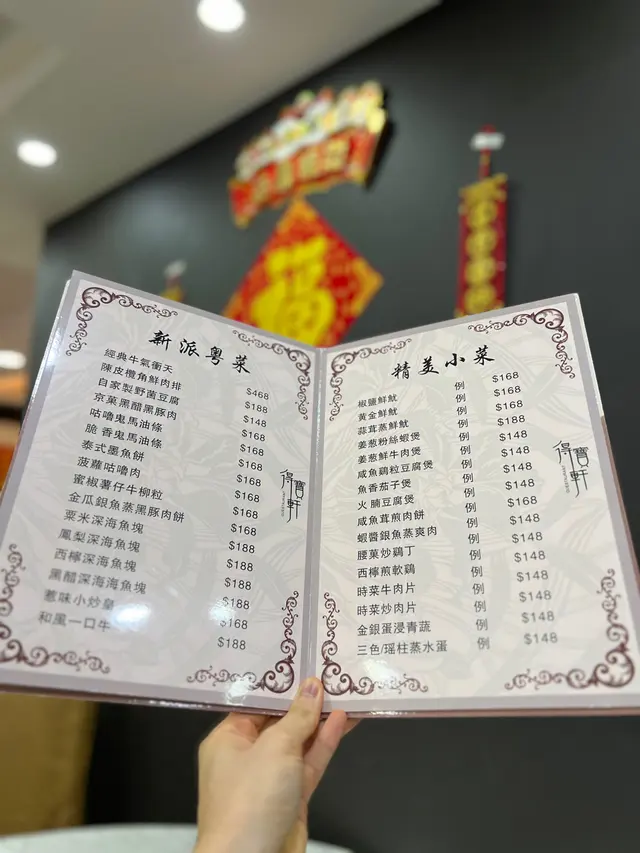 福
新派粵菜
經典牛氣衝天 $468
陳皮欖角鮮肉排 $188
自家製野菌豆腐 $148
京菓黑醋黑豚肉 $168
咕嚕鬼馬油條 $168
脆香鬼馬油條 $168
泰式墨魚餅 $168
菠蘿咕嚕肉 $168
蜜椒薯仔牛柳粒 $168
金瓜銀魚蒸黑豚肉餅 $168
粟米深海魚塊 $188
鳳梨深海魚塊 $188
西檸深海魚塊 $188
黑醋深海海魚塊 $188
惹味小炒皇 $168
和風一口牛 $188
得寶軒
精美小菜
椒鹽鮮魷 例 $168
黃金鮮魷 例 $168
蒜茸蒸鮮魷 例 $168
姜葱粉絲蝦煲 例 $188
姜葱鮮牛肉煲 例 $148
咸魚鷄粒豆腐煲 例 $148
魚香茄子煲 例 $148
火腩豆腐煲 例 $148
咸魚茸煎肉餅 例 $168
蝦醬銀魚蒸爽肉 例 $148
腰菓炒鷄丁 例 $148
西檸煎軟鷄 例 $148
時菜牛肉片 例 $148
時菜炒肉片 例 $148
金銀蛋浸青蔬 例 $148
三色/瑤柱蒸水蛋 例 $148
得寶軒